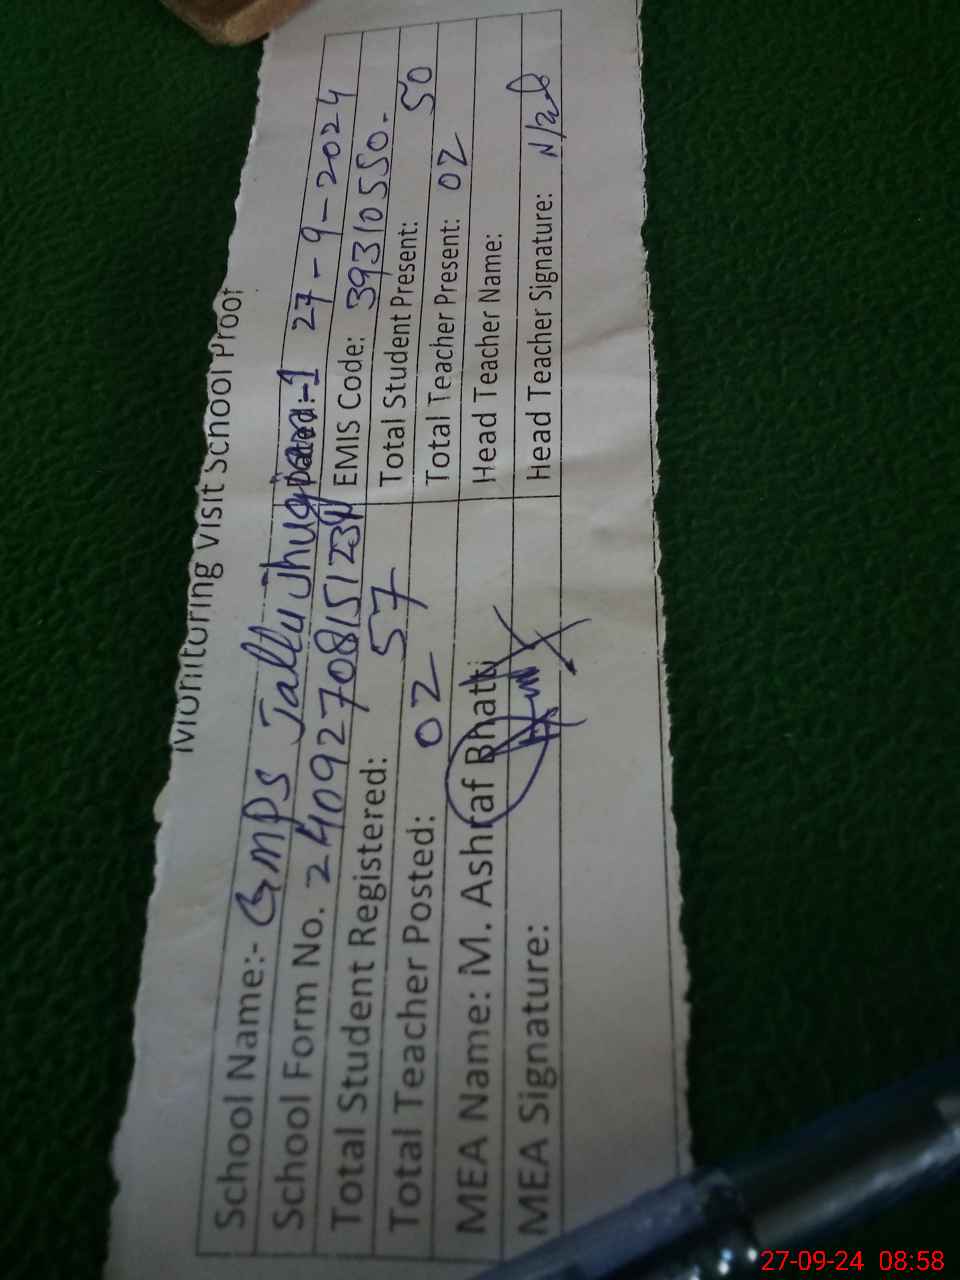 Monitoring Visit School Proof
School Name:- GMPS Jallu Jhugian-1 Dated: 27-9-2024
School Form No. 24092708151234 EMIS Code: 39310550.
Total Student Registered: 57 Total Student Present: 50
Total Teacher Posted: 02 Total Teacher Present: 02
MEA Name: M. Ashraf Bhatti Head Teacher Name:
MEA Signature: Head Teacher Signature:
27-09-24 08:58